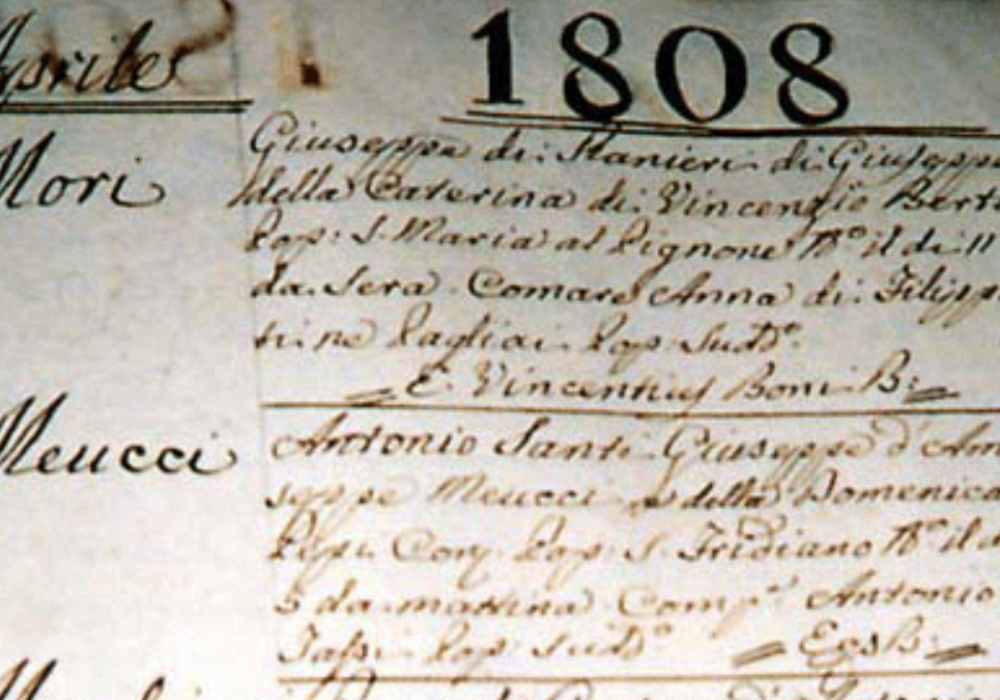 Aprile
1808
Mori
Giuseppe di: Ranieri di: Giuseppe
della Caterina di: Vincenzio Bert
Pop: S. Maria al Pignone N.º il di 11
da Sera Comare Anna di: Filipp
tine Pagliai Pop Sudd.º
E. Vincentius Boni B:
Meucci
Antonio Santi Giuseppe d'Am
seppe Meucci e della Domenica
Pepi Conj. Pop: S. Fridiano N.º il d
5 da mattina Comp.e Antonio
Tassi Pop Sudd.º Eges B: